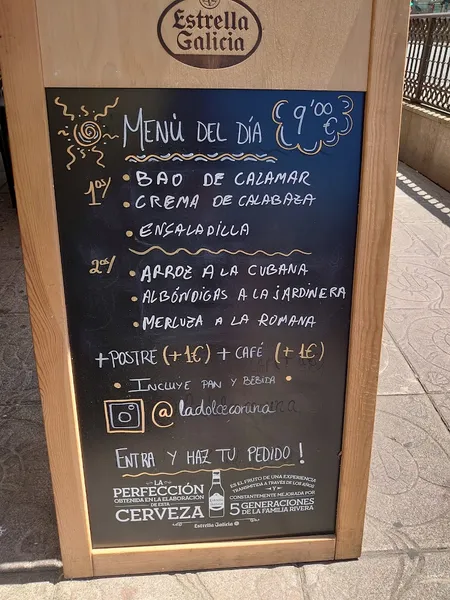 Estrella
Galicia
MENÚ DEL DÍA 9'00 €
1os/ • BAO DE CALAMAR
• CREMA DE CALABAZA
• ENSALADILLA
2os/ • ARROZ A LA CUBANA
• ALBÓNDIGAS A LA JARDINERA
• MERLUZA A LA ROMANA
+POSTRE (+1€) + CAFÉ (+1€)
• INCLUYE PAN Y BEBIDA •
@
ENTRA Y HAZ TU PEDIDO!
LA
PERFECCIÓN
OBTENIDA EN LA ELABORACIÓN
DE ESTA
CERVEZA
ES EL FRUTO DE UNA EXPERIENCIA
TRANSMITIDA A TRAVÉS DE LOS AÑOS
Y
CONSTANTEMENTE MEJORADA POR
5 GENERACIONES
DE LA FAMILIA RIVERA
Estrella Galicia